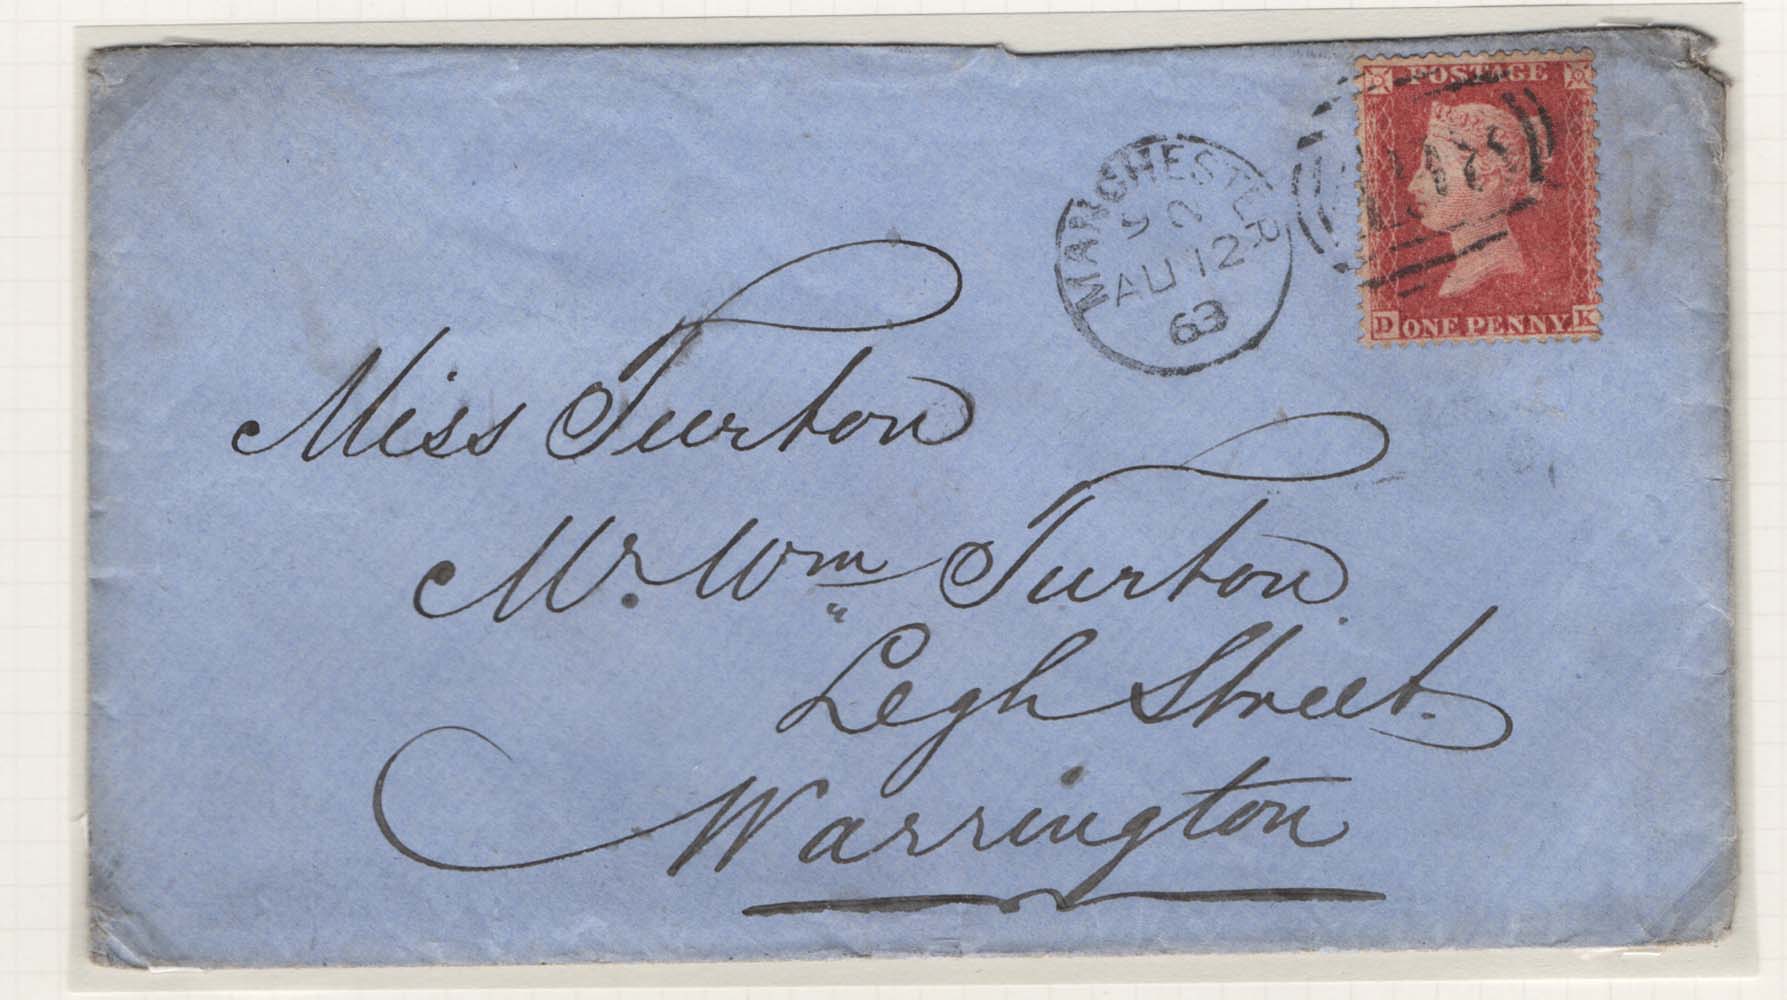 POSTAGE
MANCHESTER
AU 12
63
D ONE PENNY K
Miss Turton
Mr. Wm Turton
Legh Street.
Warrington